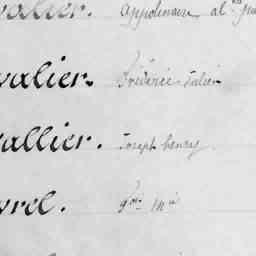 valier. Appolinaire al
valier. Frédéric Julien
vallier. Joseph henry.
vrel.